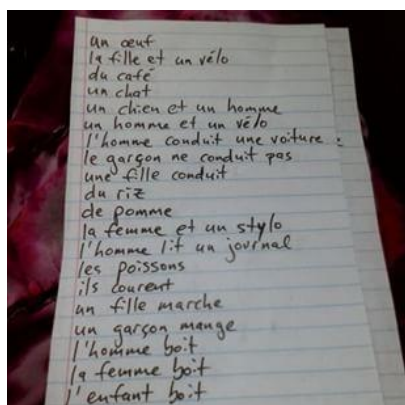 un œuf
la fille et un vélo
du café
un chat
un chien et un homme
un homme et un vélo
l'homme conduit une voiture :
le garçon ne conduit pas
une fille conduit
du riz
de pomme
la femme et un stylo
l'homme lit un journal
les poissons
ils courent
un fille marche
un garçon mange
l'homme boit
la femme boit
l'enfant boit